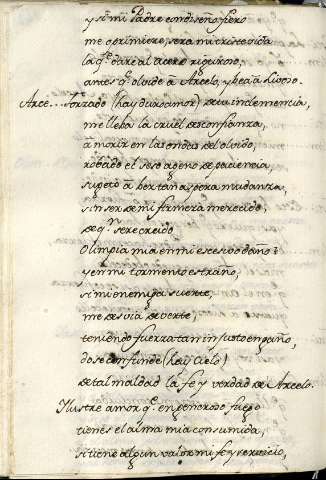 y si mi Padre con diseño fiero
me oprimiere, sera mi triste vida
la q̃ dare al acero riguroso,
antes q̃ olvide a Arcelo, y sea a
Arce... forzado (hay duro amor) de tu inclemencia,
me lleba la cruel desconfianza,
a morir en las ondas del olvido,
robado el seso ageno de paciencia,
sugeto a ver tan aspera mudanza,
sin ser de mi firmeza merecido
de q.n sere creido
Olimpia mia en mi escesivo daño
y en mi tormento estraño,
si mi enemiga suerte,
me desvia de verte,
teniendo fuerza tan injusto engaño,
do se confunde (hay Cielo)
de tal maldad la fe y verdad de Arcelo.
Ilustre amor q̃ en generoso fuego
tienes el alma mia consumida,
si tiene algun valor mi fe y